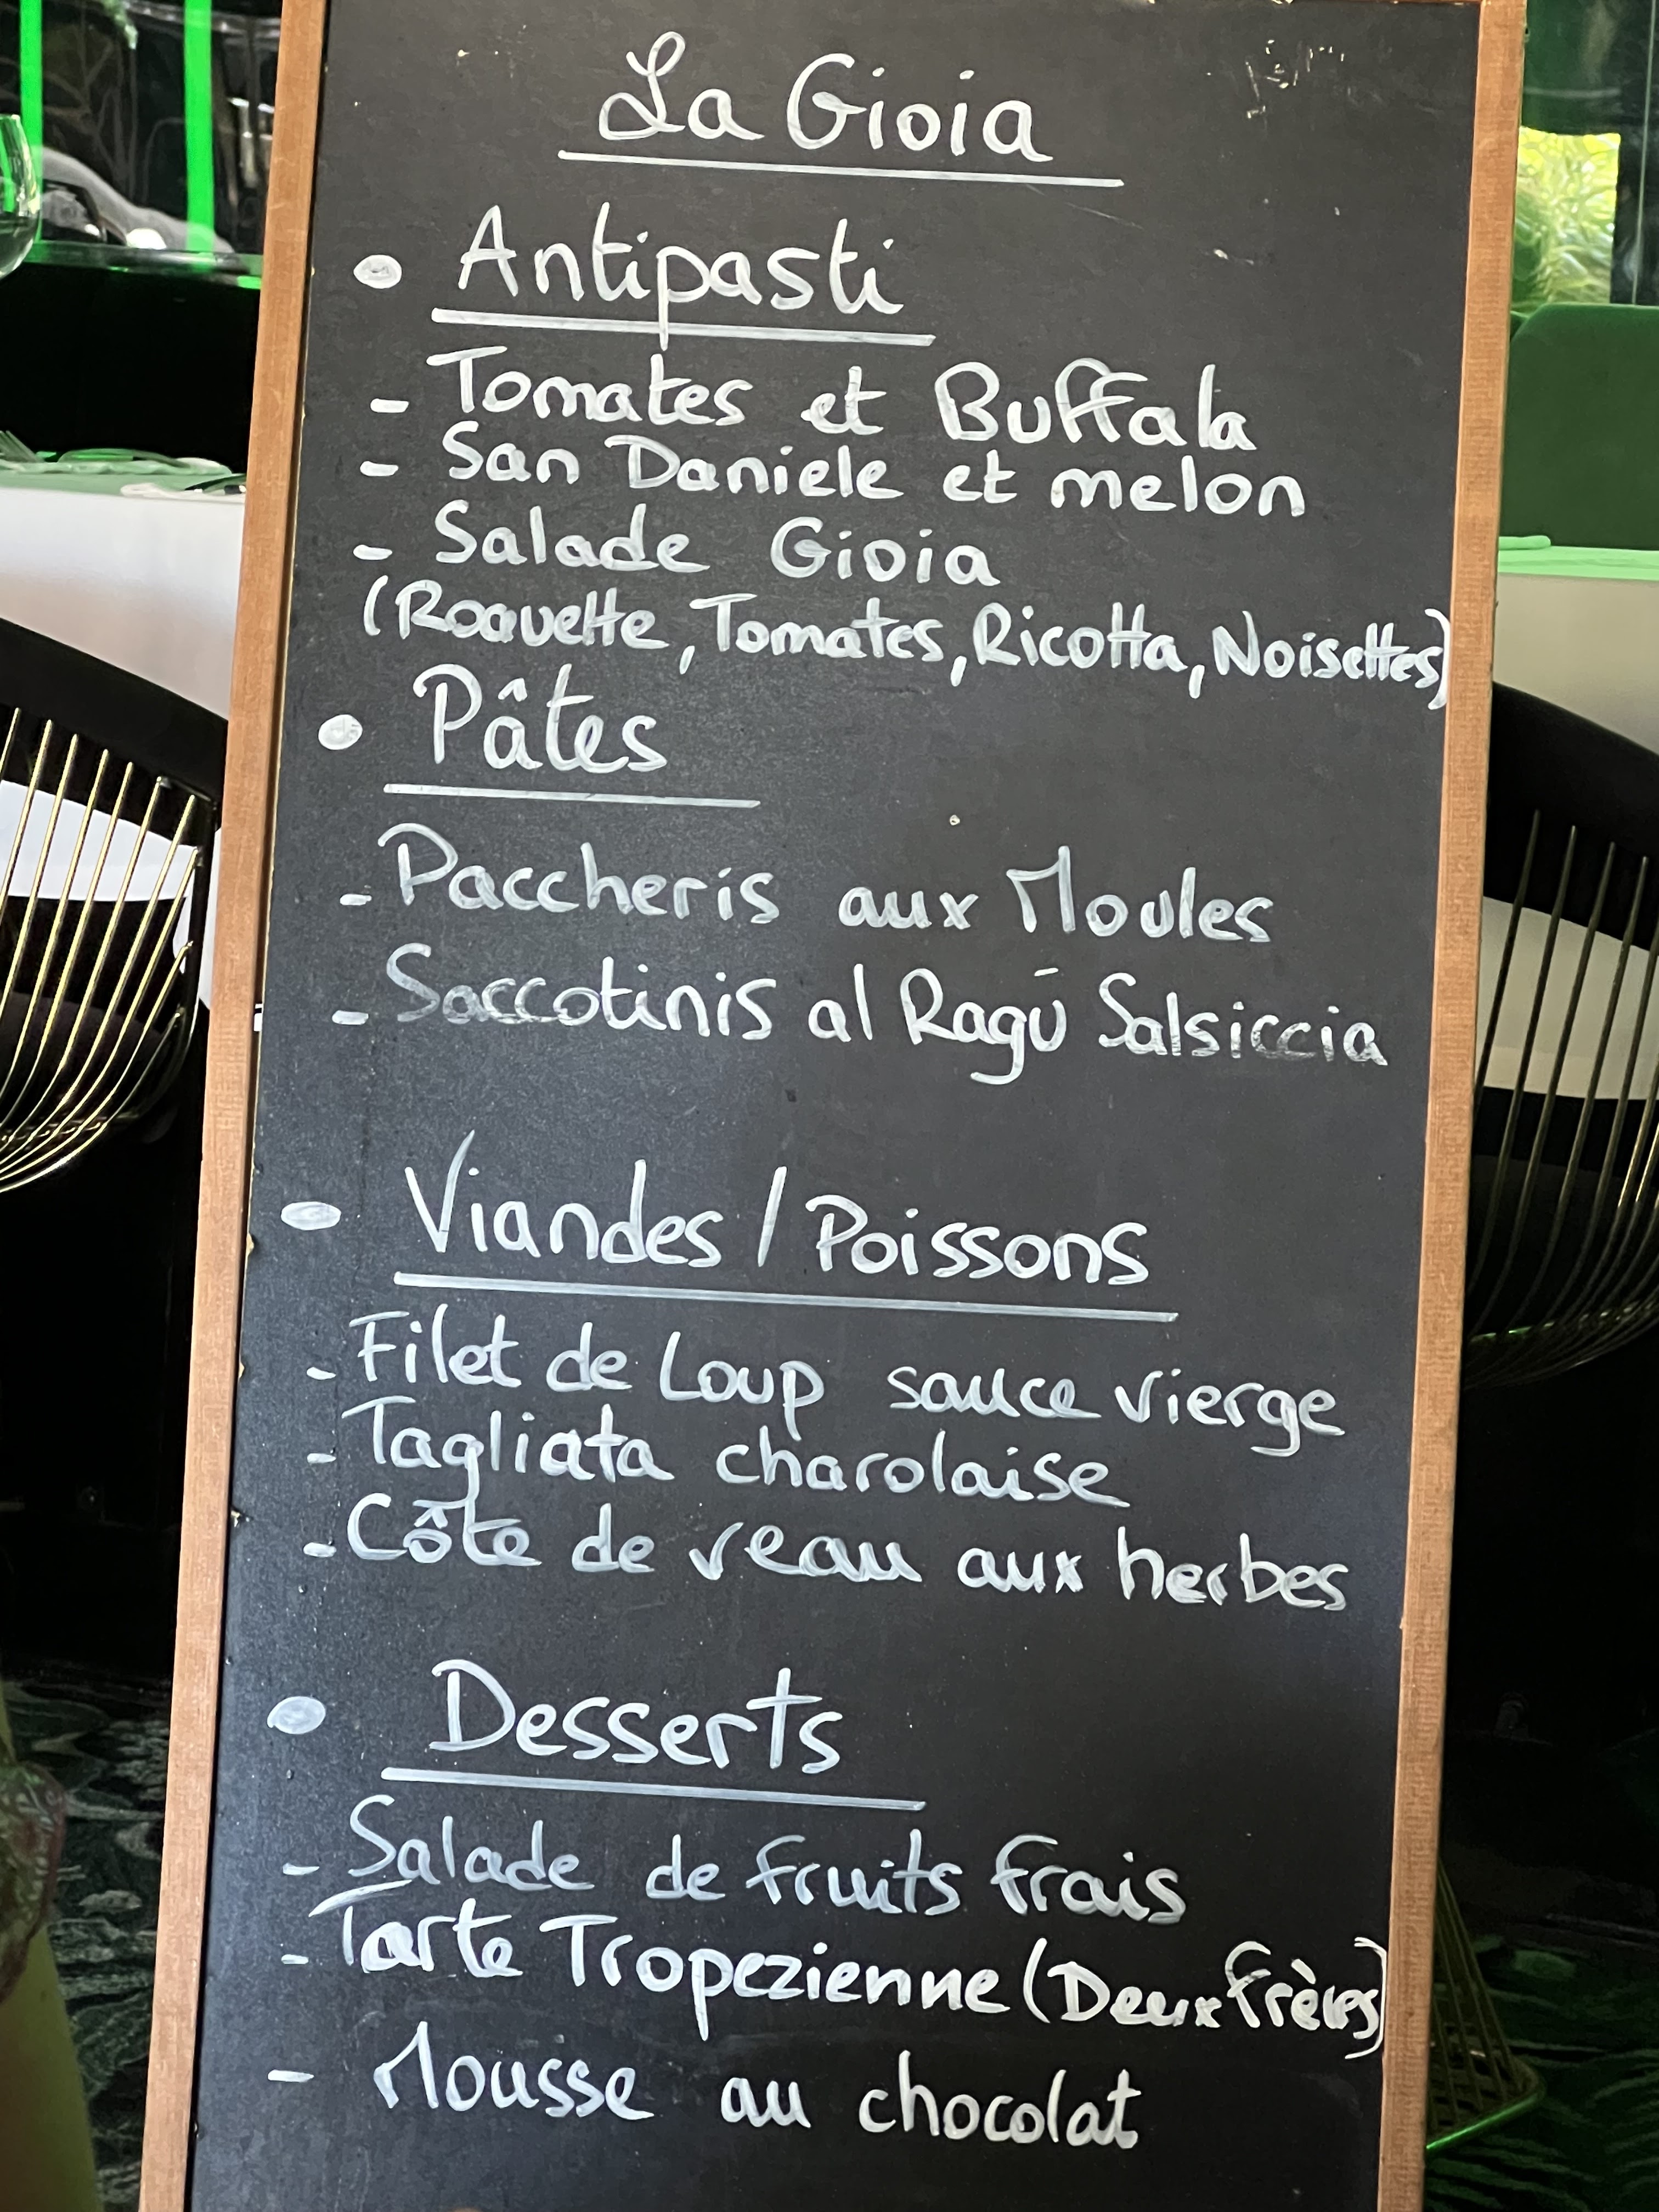 La Gioia
• Antipasti
- Tomates et Buffala
- San Daniele et melon
- Salade Gioia
(Roquette, Tomates, Ricotta, Noisettes)
• Pâtes
- Paccheris aux Moules
- Saccotinis al Ragū Salsiccia
• Viandes / Poissons
- Filet de Loup sauce vierge
- Tagliata charolaise
- Côte de veau aux herbes
• Desserts
- Salade de fruits frais
- Tarte Tropezienne (Deux frères)
- Mousse au chocolat